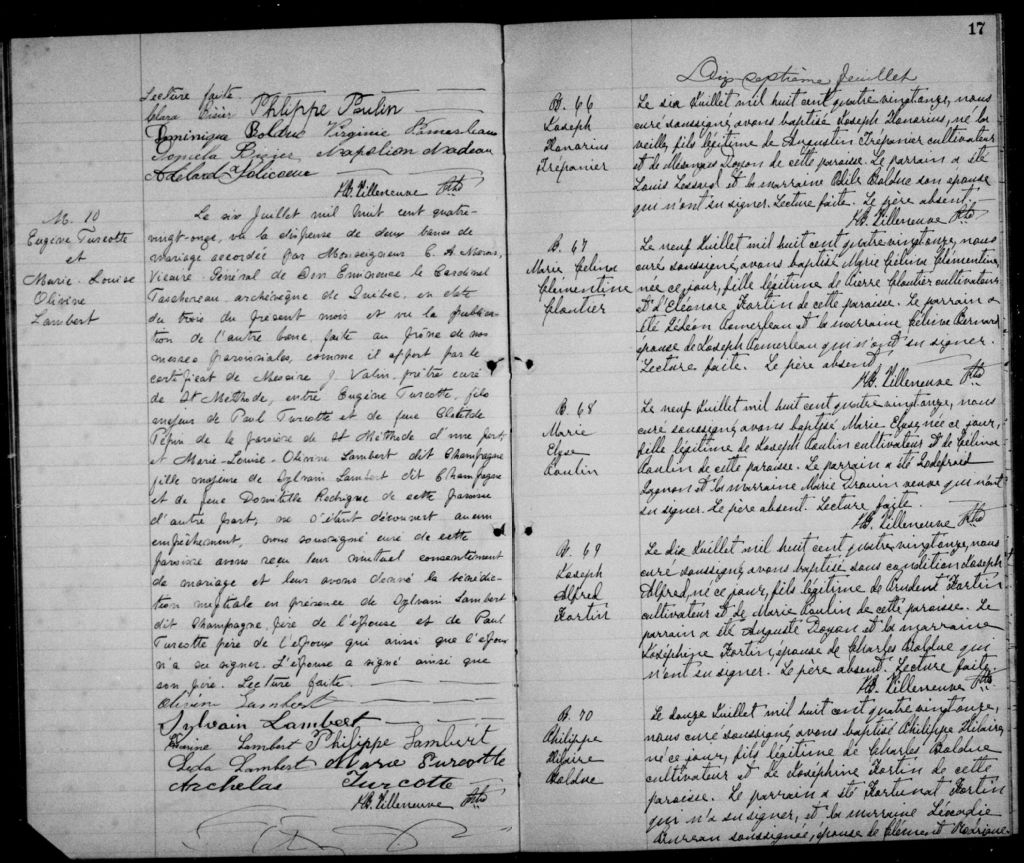 Lecture faite
Clara Bizier Philippe Poulin
Dominique Bolduc Virginie
Roméla Bizier Napoléon Nadeau
Adelard Jolicoeur
HB. Villeneuve Ptre
M. 10
Eugène Turcotte
et
Marie-Louise
Olivine
Lambert
Le six Juillet mil huit cent quatre-
vingt-onze, vu la dispense de deux bancs de
mariage accordée par Monseigneur C. A. Marois,
Vicaire-Général de Son Eminence le Cardinal
Taschereau, archévèque de Québec, en date
du trois du présent mois et vu la publica-
tion de l'autre banc, faite au prône de nos
messes paroissiales, comme il appert par le
certificat de Messire J. Vallin, prêtre curé
de St Methode, entre Eugène Turcotte, fils
majeur de Paul Turcotte et de feue Clotilde
Pépin de la paroisse de St Méthode d'une part,
et Marie-Louise-Olivine Lambert dit Champagne
fille majeure de Sylvain Lambert dit Champagne
et de feue Domitilde Rodrigue de cette paroisse
d'autre part, ne s'étant découvert aucun
empêchement, nous soussigné curé de cette
paroisse avons reçu leur mutuel consentement
de mariage et leur avons donné la bénédic-
tion nuptiale en présence de Sylvain Lambert
dit Champagne, père de l'épouse et de Paul
Turcotte père de l'époux qui ainsi que l'époux
n'a su signer. L'épouse a signé ainsi que
son père. Lecture faite.
Olivine Lambert
Sylvain Lambert
Lambert Philippe Lambert
Léda Lambert Marie Turcotte
Archelas Turcotte
HB. Villeneuve Ptre
17
Dix septième feuillet
B. 66
Joseph
Honorius
Trépanier
Le six Juillet mil huit cent quatre vingt onze, nous
curé soussigné, avons baptisé Joseph Honorius, né la
veille, fils légitime de Augustin Trépanier cultivateur
et de Doyon de cette paroisse. Le parrain a été
Louis Lessard et la marraine Odile Bolduc son épouse
qui n'ont su signer. Lecture faite. Le père absent.
HB. Villeneuve Ptre
B. 67
Marie Celina
Clémentine
Cloutier
Le neuf Juillet mil huit cent quatre vingt onze, nous
curé soussigné, avons baptisé Marie Celina Clémentine
née ce jour, fille légitime de Pierre Cloutier cultivateur
& d'Eléonore Fortin de cette paroisse. Le parrain a
été Gédéon Pomerleau et la marraine Célina Bernard
épouse de Joseph Pomerleau qui n'ont su signer.
Lecture faite. Le père absent.
HB. Villeneuve Ptre
B. 68
Marie
Elyse
Poulin
Le neuf Juillet mil huit cent quatre vingt onze, nous
curé soussigné, avons baptisé Marie Elyse, née ce jour,
fille légitime de Joseph Poulin cultivateur & de Celina
Poulin de cette paroisse. Le parrain a été Godefroid
Gagnon et la marraine Marie Drouin veuve qui n'ont
su signer. Le père absent. Lecture faite.
HB. Villeneuve Ptre
B. 69
Joseph
Alfred
Fortin
Le dix Juillet mil huit cent quatre vingt onze, nous
curé soussigné, avons baptisé sous condition Joseph
Alfred, né ce jour, fils légitime de Prudent Fortin
cultivateur et de Marie Poulin de cette paroisse. Le
parrain a été Auguste Doyon et la marraine
Joséphine Fortin, épouse de Charles Bolduc qui
n'ont su signer. Le père absent. Lecture faite.
HB. Villeneuve Ptre
B. 70
Philippe
Hilaire
Bolduc
Le douze Juillet mil huit cent quatre vingt onze,
nous curé soussigné, avons baptisé Philippe Hilaire,
né ce jour, fils légitime de Charles Bolduc
cultivateur et de Joséphine Fortin de cette
paroisse. Le parrain a été Fortunat Fortin
qui n'a su signer, et la marraine Léocadie
Bureau soussignée, épouse de Clément Rodrigue